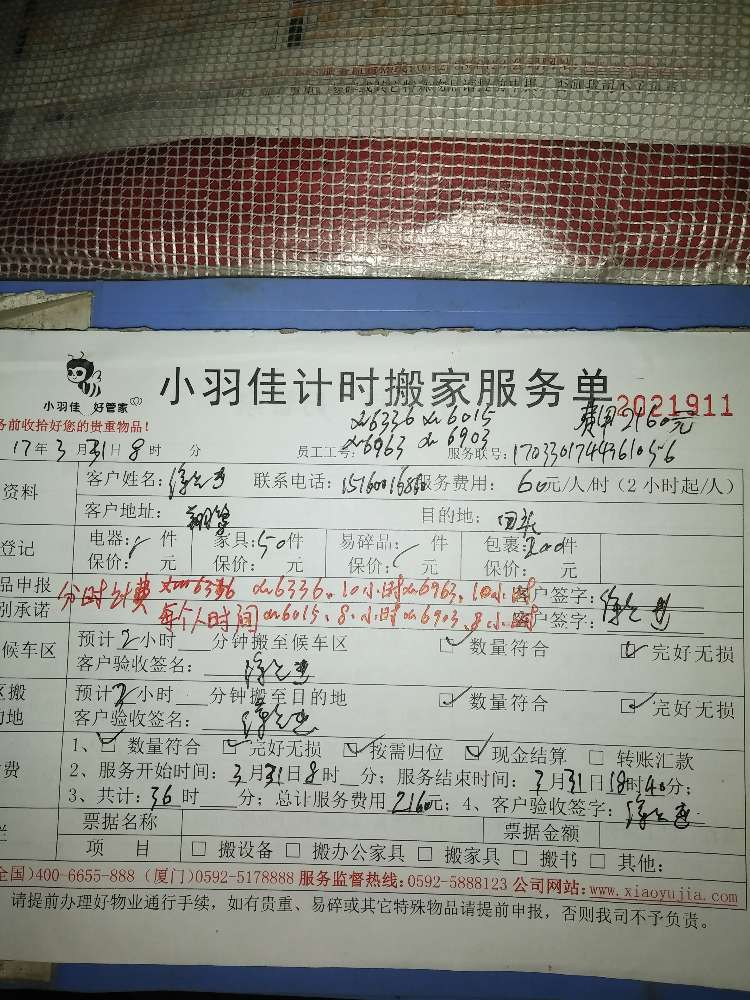 小羽佳 好管家
小羽佳计时搬家服务单
2021911
务前收拾好您的贵重物品!
xm6336 xm6015 费用2160元
xm6963 xm6903
17年3月31日8时 分 员工工号: 服务联号:
资料 客户姓名: 联系电话: 服务费用: 60元/人/时(2小时起/人)
客户地址: 目的地:
登记 电器: 件 家具:50件 易碎品: 件 包裹:200件
保价: 元 保价: 元 保价: 元 保价: 元
品申报 分时计费 xm6336、10小时xm6963、10小时 客户签字:
别承诺 每个人时间xm6015、8小时xm6903、8小时 客户签字:
候车区 预计2小时 分钟搬至候车区 数量符合 完好无损
客户验收签名:
区搬 预计2小时 分钟搬至目的地 数量符合 完好无损
的地 客户验收签名:
费 1、 数量符合 完好无损 按需归位 现金结算 转账汇款
2、服务开始时间:3月31日8时 分;服务结束时间:3月31日18时40分;
3、共计:36时 分;总计服务费用2160元;4、客户验收签字:
票据名称 票据金额
项 目 搬设备 搬办公家具 搬家具 搬书 其他:
全国)400-6655-888 (厦门)0592-5178888 服务监督热线:0592-5888123 公司网站:www.xiaoyujia.com
请提前办理好物业通行手续,如有贵重、易碎或其它特殊物品请提前申报,否则我司不予负责。